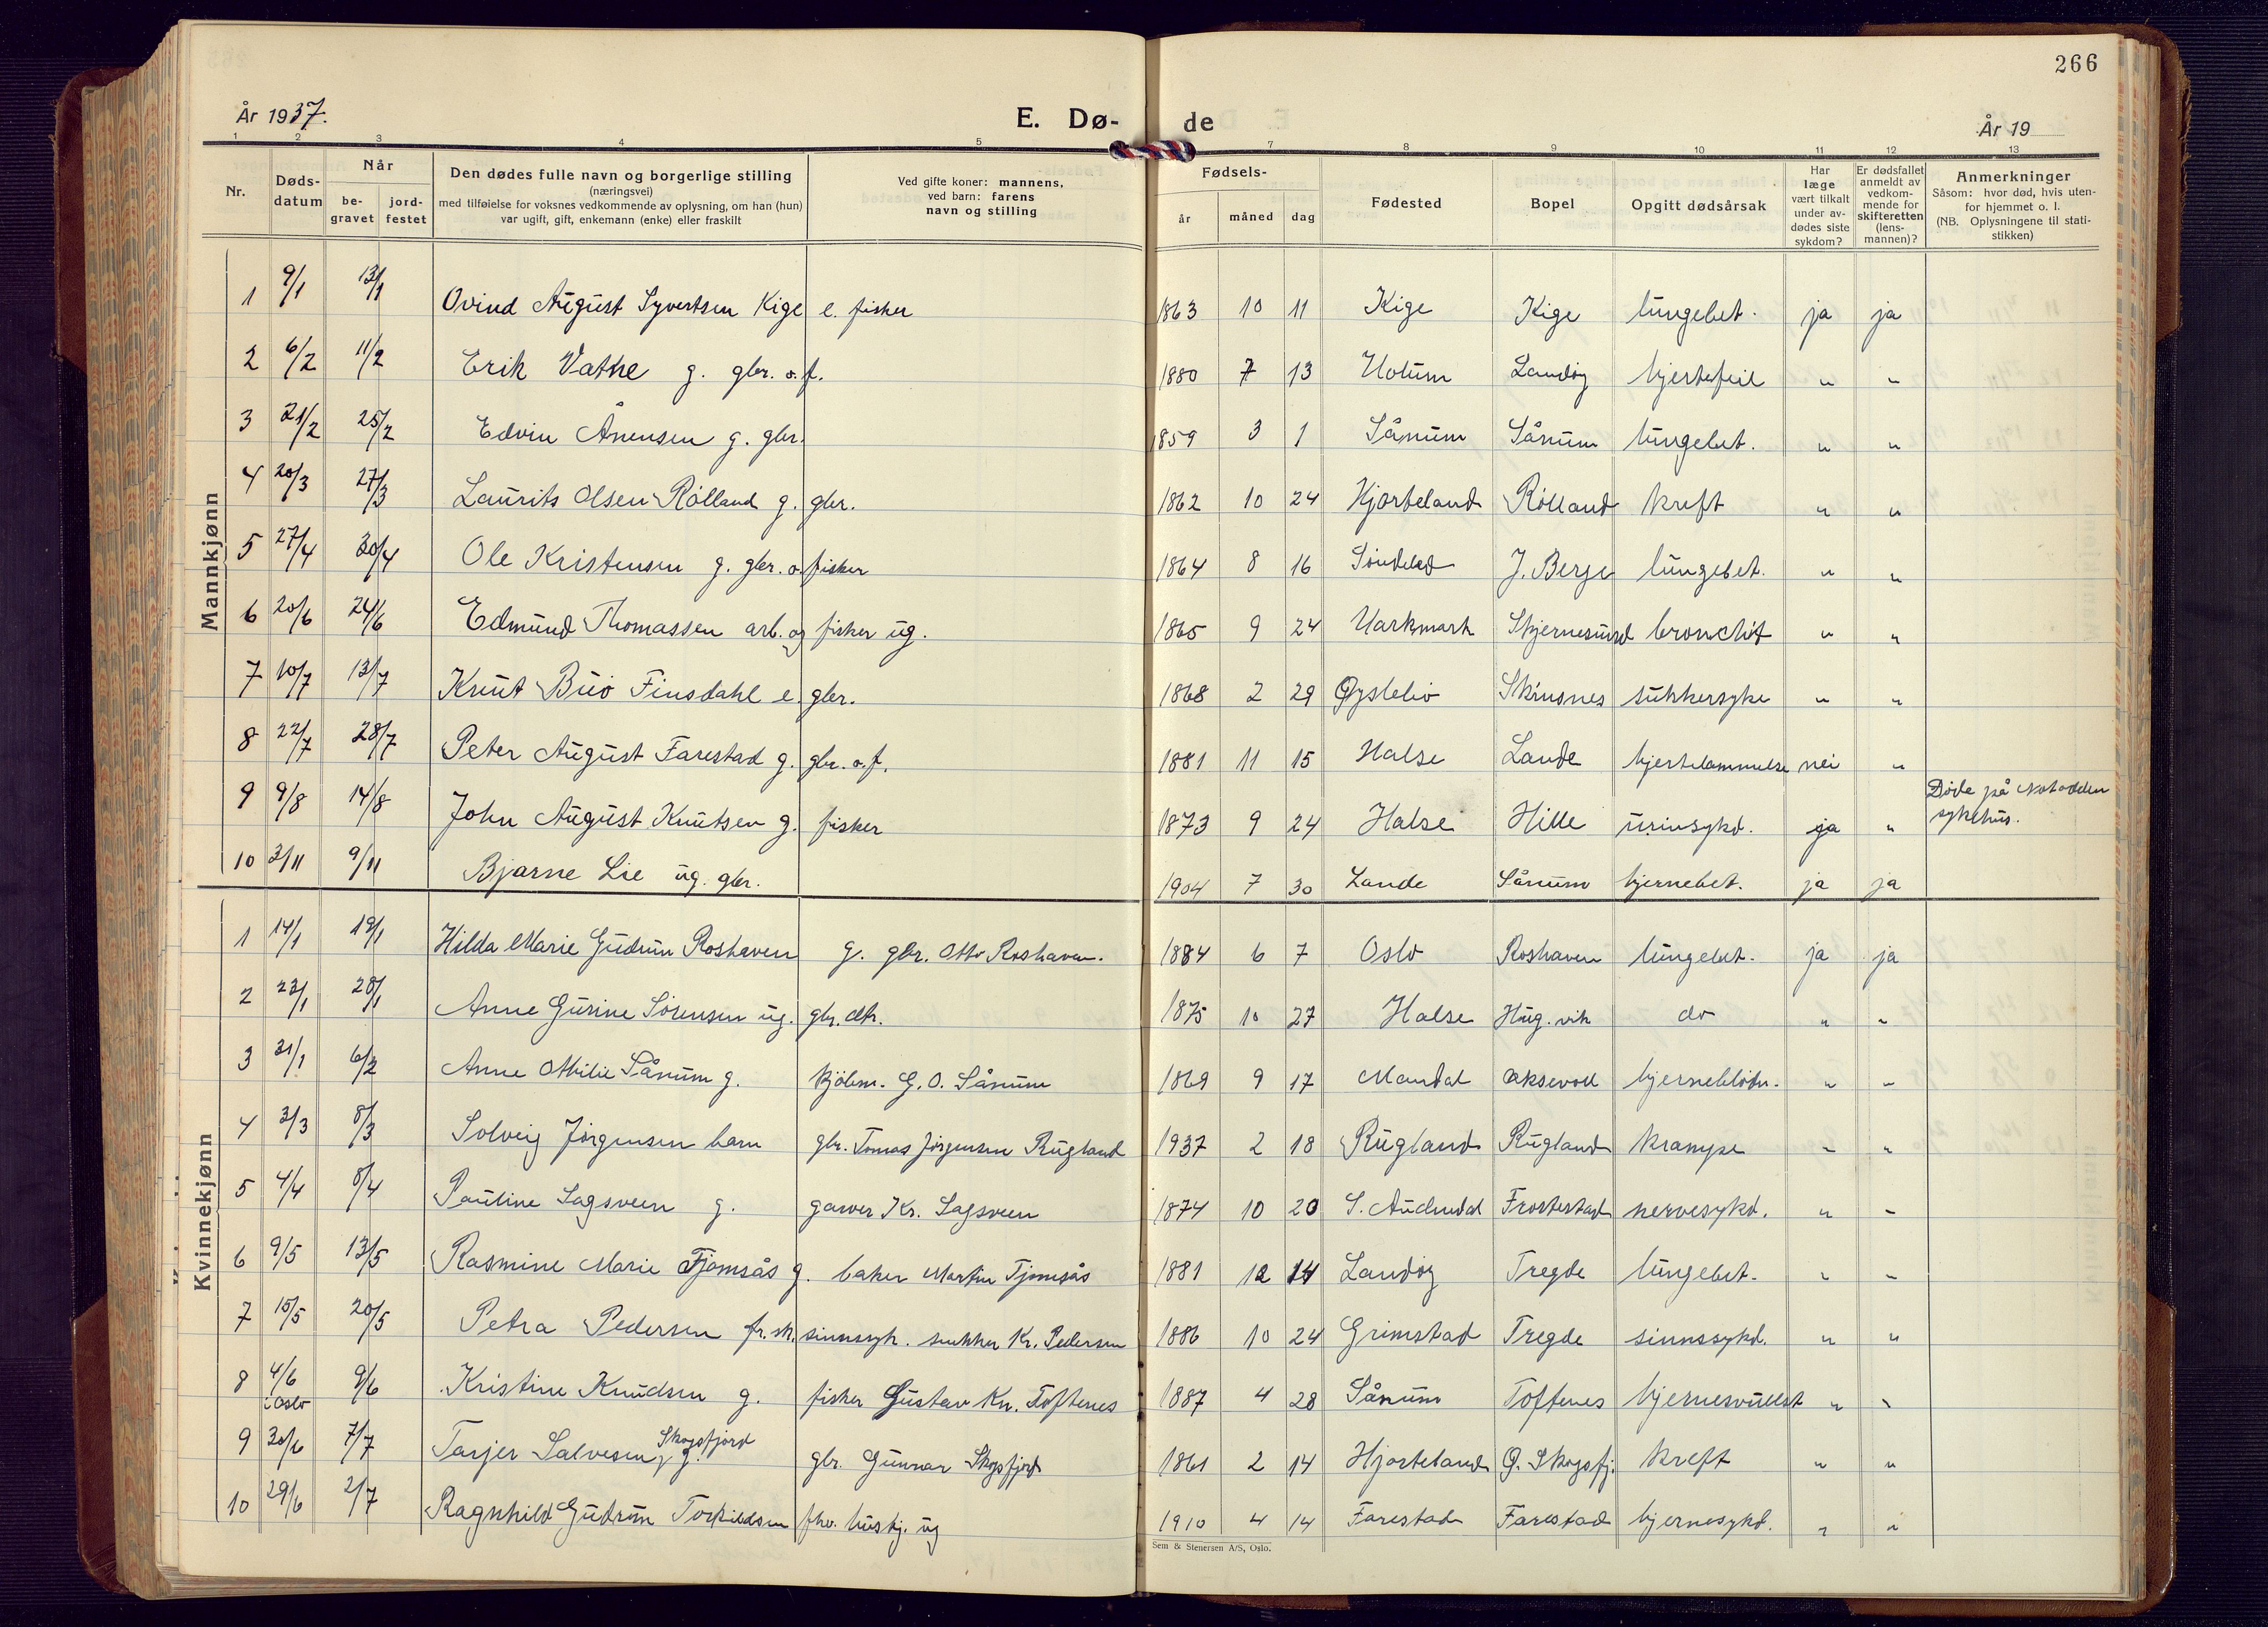 266
År 1937.
E. Dø-
de
År 19
1 2 3 4 5 7 8 9 10 11 12 13
Nr.
Døds-
datum
Når
be-
gravet
jord-
festet
Den dødes fulle navn og borgerlige stilling
(næringsvei)
med tilføielse for voksnes vedkommende av oplysning, om han (hun)
var ugift, gift, enkemann (enke) eller fraskilt
Ved gifte koner: mannens,
ved barn: farens
navn og stilling
Fødsels-
år måned dag
Fødested
Bopel
Opgitt dødsårsak
Har
læge
vært tilkalt
under av-
dødes siste
sykdom?
Er dødsfallet
anmeldt av
vedkom-
mende for
skifteretten
(lens-
mannen)?
Anmerkninger
Såsom: hvor død, hvis uten-
for hjemmet o. l.
(NB. Oplysningene til stati-
stikken)
Mannkjønn
1 9/1 13/1 Ovind August Syvertsen Kige e. fisker 1863 10 11 Kige Kige lungebet. ja ja
2 6/2 11/2 Erik Vatne g. gbr. o. f. 1880 7 13 Holum Landøy hjertefeil " "
3 21/2 25/2 Edvin Ånensen g. gbr. 1859 3 1 Sånum Sånum lungebet. " "
4 20/3 27/3 Laurits Olsen Rølland g. gbr. 1862 10 24 Hjorteland Rølland kreft " "
5 27/4 30/4 Ole Kristensen g. gbr. o. fisker 1864 8 16 Søndeled J. Berge lungebet. " "
6 20/6 24/6 Edmund Thomassen arb. og fisker ug. 1865 9 24 Harkmark Skjernesund bronchit " "
7 10/7 13/7 Knut Buø Finsdahl e. gbr. 1868 2 29 Øyslebø Skinsnes sukkersyke " "
8 22/7 28/7 Peter August Farestad g. gbr. o. f. 1881 11 15 Halse Lande hjertelammelse nei "
9 9/8 14/8 John August Knutsen g. fisker 1873 9 24 Halse Hille urinsykd. ja " Døde på Notodden
sykehus.
10 3/11 9/11 Bjarne Lie ug. gbr. 1904 7 30 Lande Sånum hjernebet. ja ja
Kvinnekjønn
1 14/1 19/1 Hilda Marie Gudrun Roshaven g. gbr. Otto Roshaven. 1884 6 7 Oslo Roshaven lungebet. ja ja
2 23/1 28/1 Anne Gurine Sørensen ug. gbr. dtr. 1875 10 27 Halse Hug. vik do " "
3 31/1 6/2 Anne Otilie Sånum g. kjøbm. G. O. Sånum 1869 9 17 Mandal Aksevoll hjerneblødn. " "
4 3/3 8/3 Solveig Jørgensen barn gbr. Tomas Jørgensen Rugland 1937 2 18 Rugland Rugland krampe " "
5 4/4 8/4 Pauline Sagsveen g. garver Kr. Sagsveen 1874 10 20 S. Audnedal Frostestad nervesykd. " "
6 9/5 13/5 Rasmine Marie Tjomsås g. baker Martin Tjomsås 1881 12 14 Landøy Tregde lungebet. " "
7 15/5 20/5 Petra Pedersen fr. sk. sinnssyk. snekker Kr. Pedersen 1886 10 24 Grimstad Tregde sinnssykd. " "
8 4/6 9/6 Kristine Knudsen g. fisker Gustav Kn. Toftenes 1887 4 28 Sånum Toftenes hjernesvullst " "
i Oslo
9 30/6 7/7 Tarjer Salvesen Skogsfjord g. gbr. Gunnar Skogsfjord 1861 2 14 Hjorteland Ø. Skogsfj. kreft " "
10 29/6 2/7 Ragnhild Gudrun Torkildsen fhv. hushj. ug 1910 4 14 Farestad Farestad hjernesykd. " "
Sem & Stenersen A/S, Oslo.